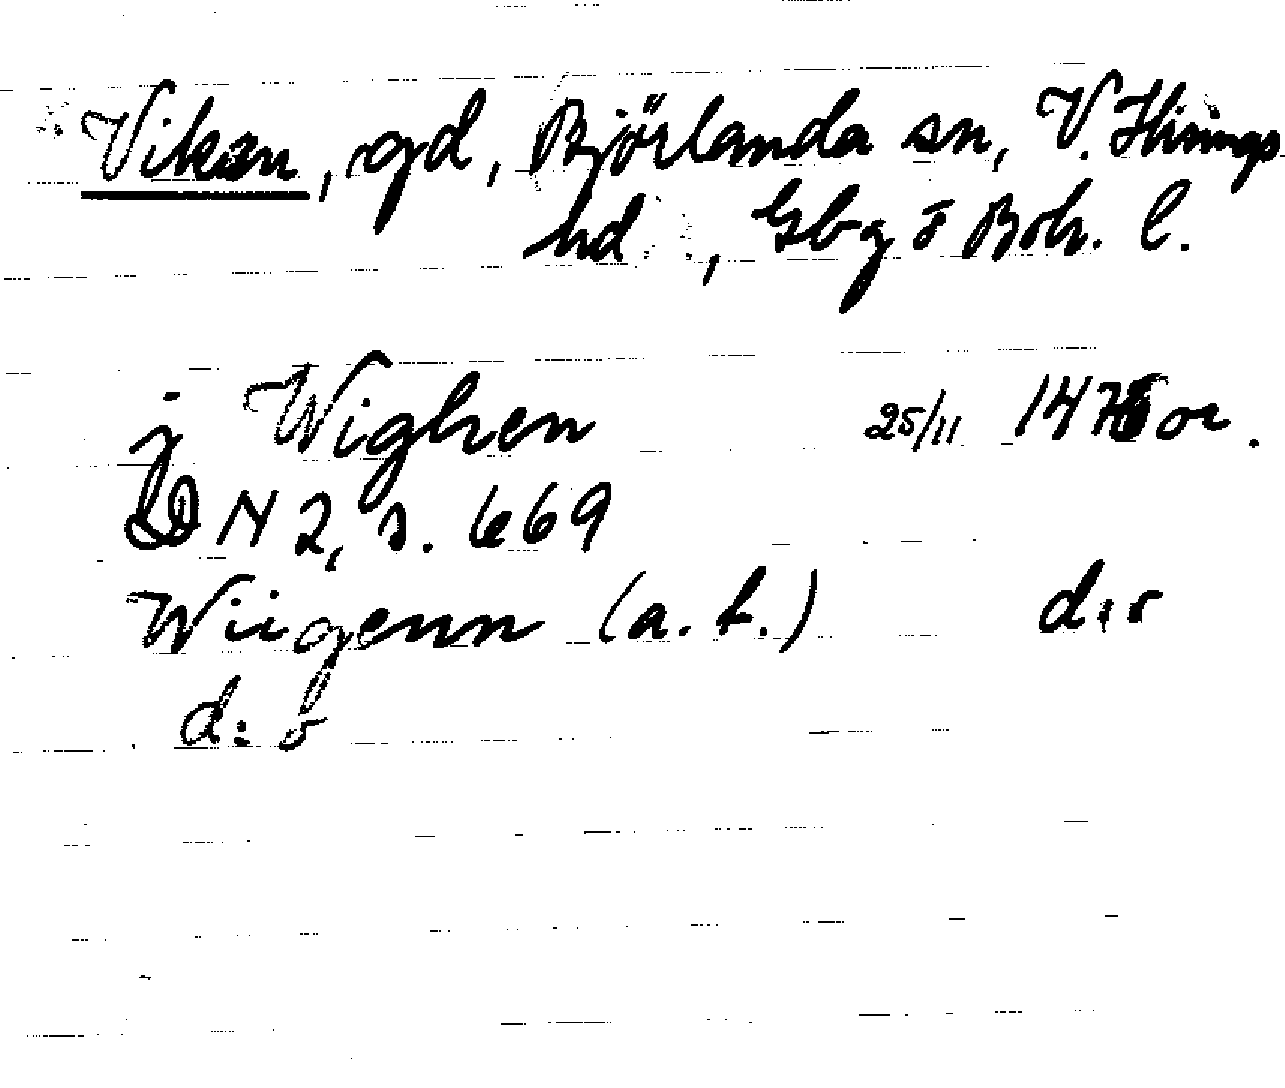 Viken, gd, Björlanda sn, V. Hisings
hd, Gbg o Boh. l.
j Wighen 25/11 1476 or.
DN 2, s. 669
Wiigenn (a. t.) d:o
d:o